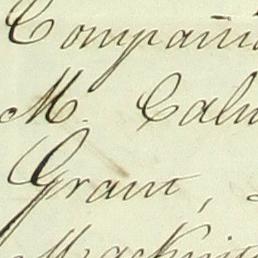 Compañi
M. Calv
Grant,
Mackin